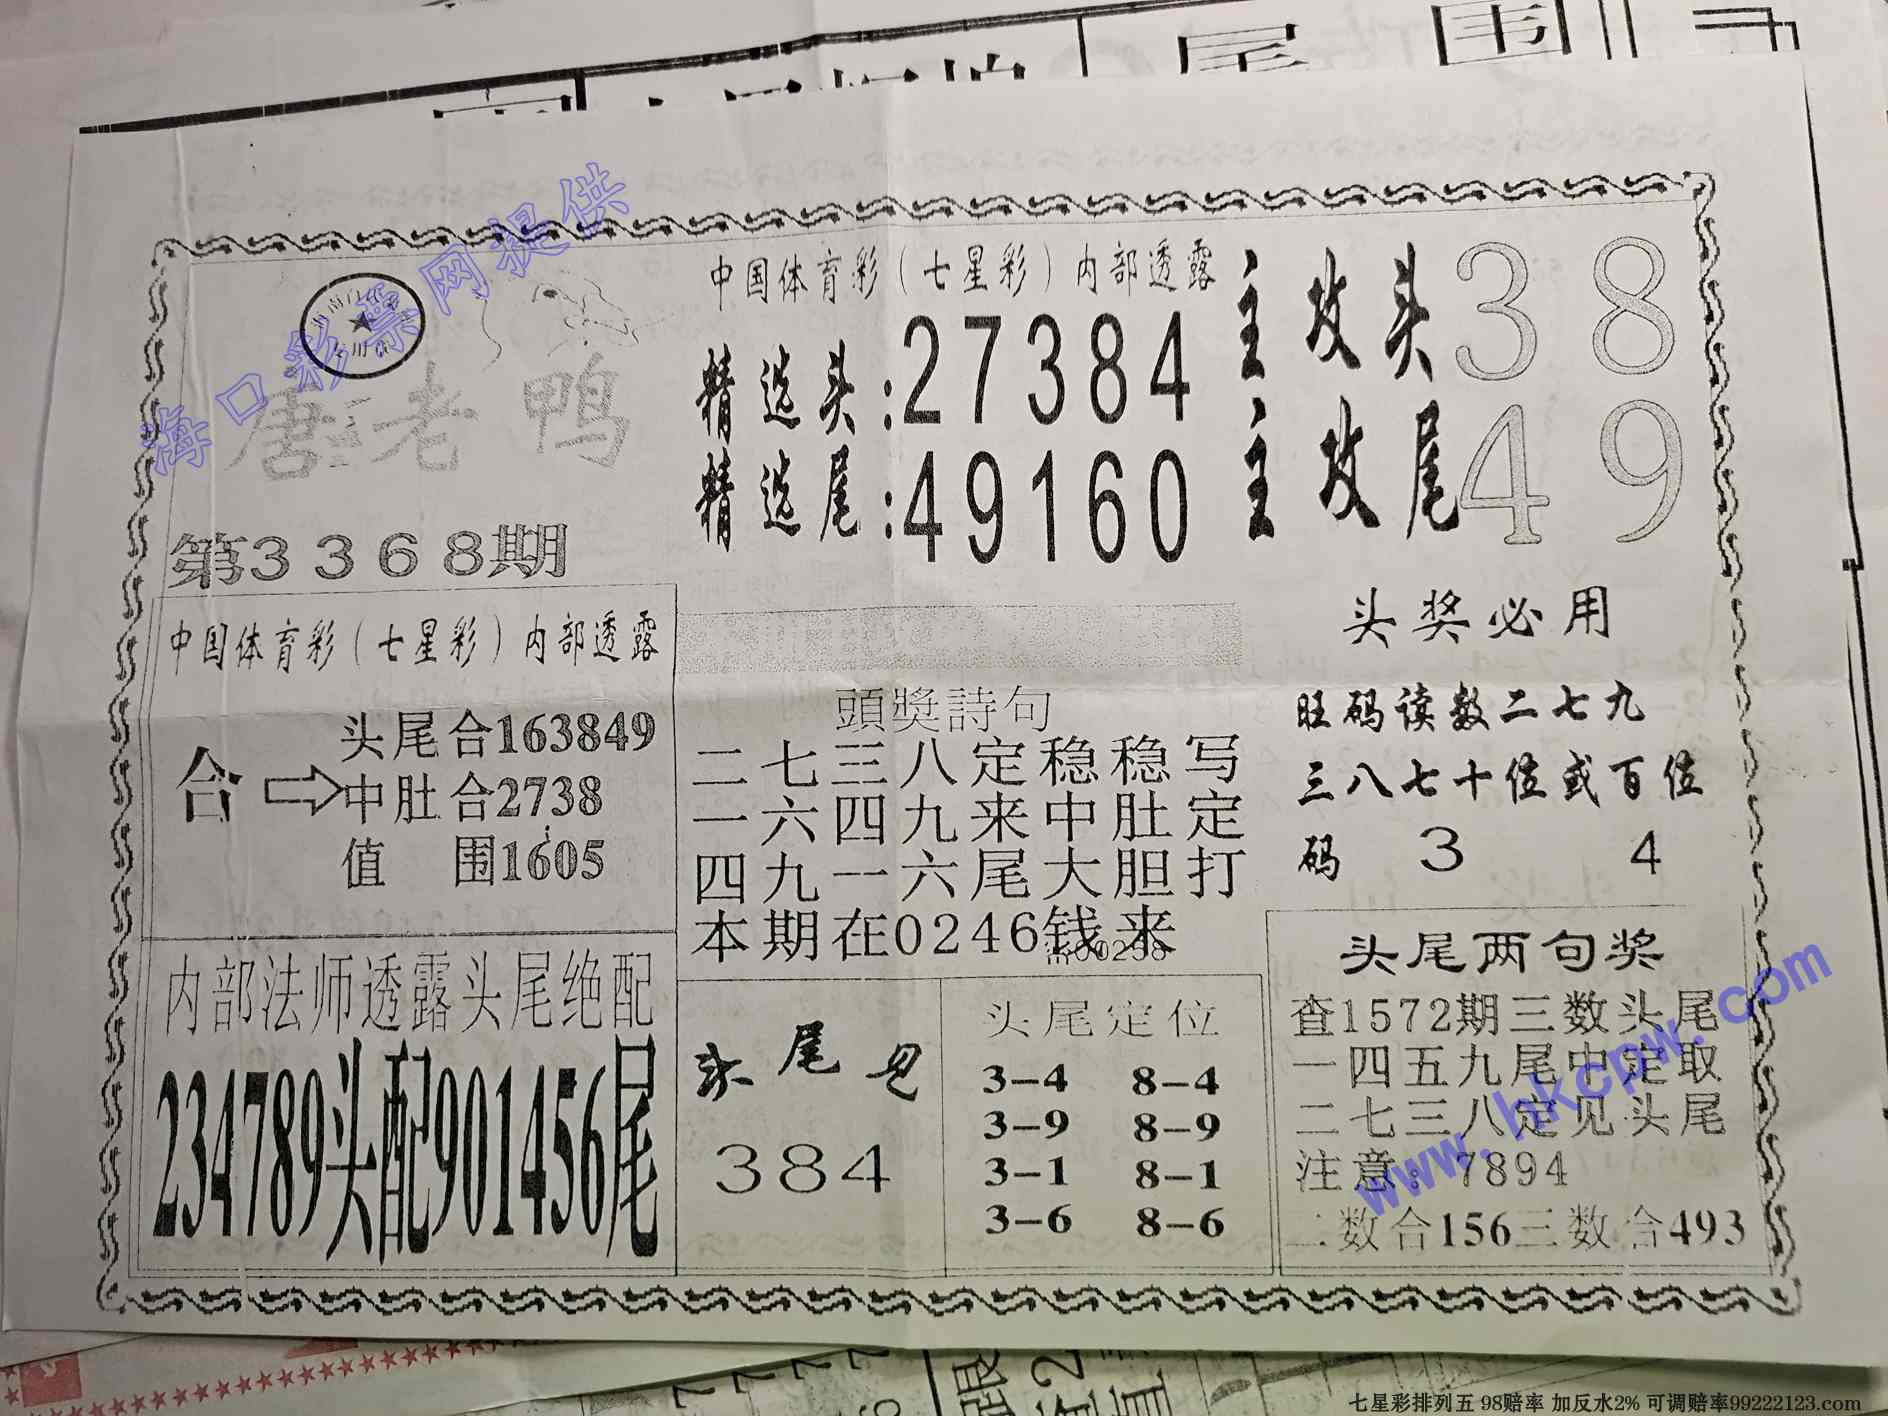 尾 围
海口彩票网提供
唐老鸭
第3368期
中国体育彩(七星彩)内部透露
精选头:27384
精选尾:49160
主攻头38
主攻尾49
中国体育彩(七星彩)内部透露
合
头尾合163849
中肚合2738
值 围1605
頭獎詩句
二七三八定稳稳写
一六四九来中肚定
四九一六尾大胆打
本期在0246钱来
头奖必用
旺码读数二七九
三八七十位或百位
码 3 4
内部法师透露头尾绝配
234789头配901456尾
头尾见
384
头尾定位
3-4 8-4
3-9 8-9
3-1 8-1
3-6 8-6
头尾两句奖
查1572期三数头尾
一四五九尾中定取
二七三八定见头尾
注意:7894
二数合156三数合493
www.hkcpw.com
七星彩排列五 98赔率 加反水2% 可调赔率99222123.com